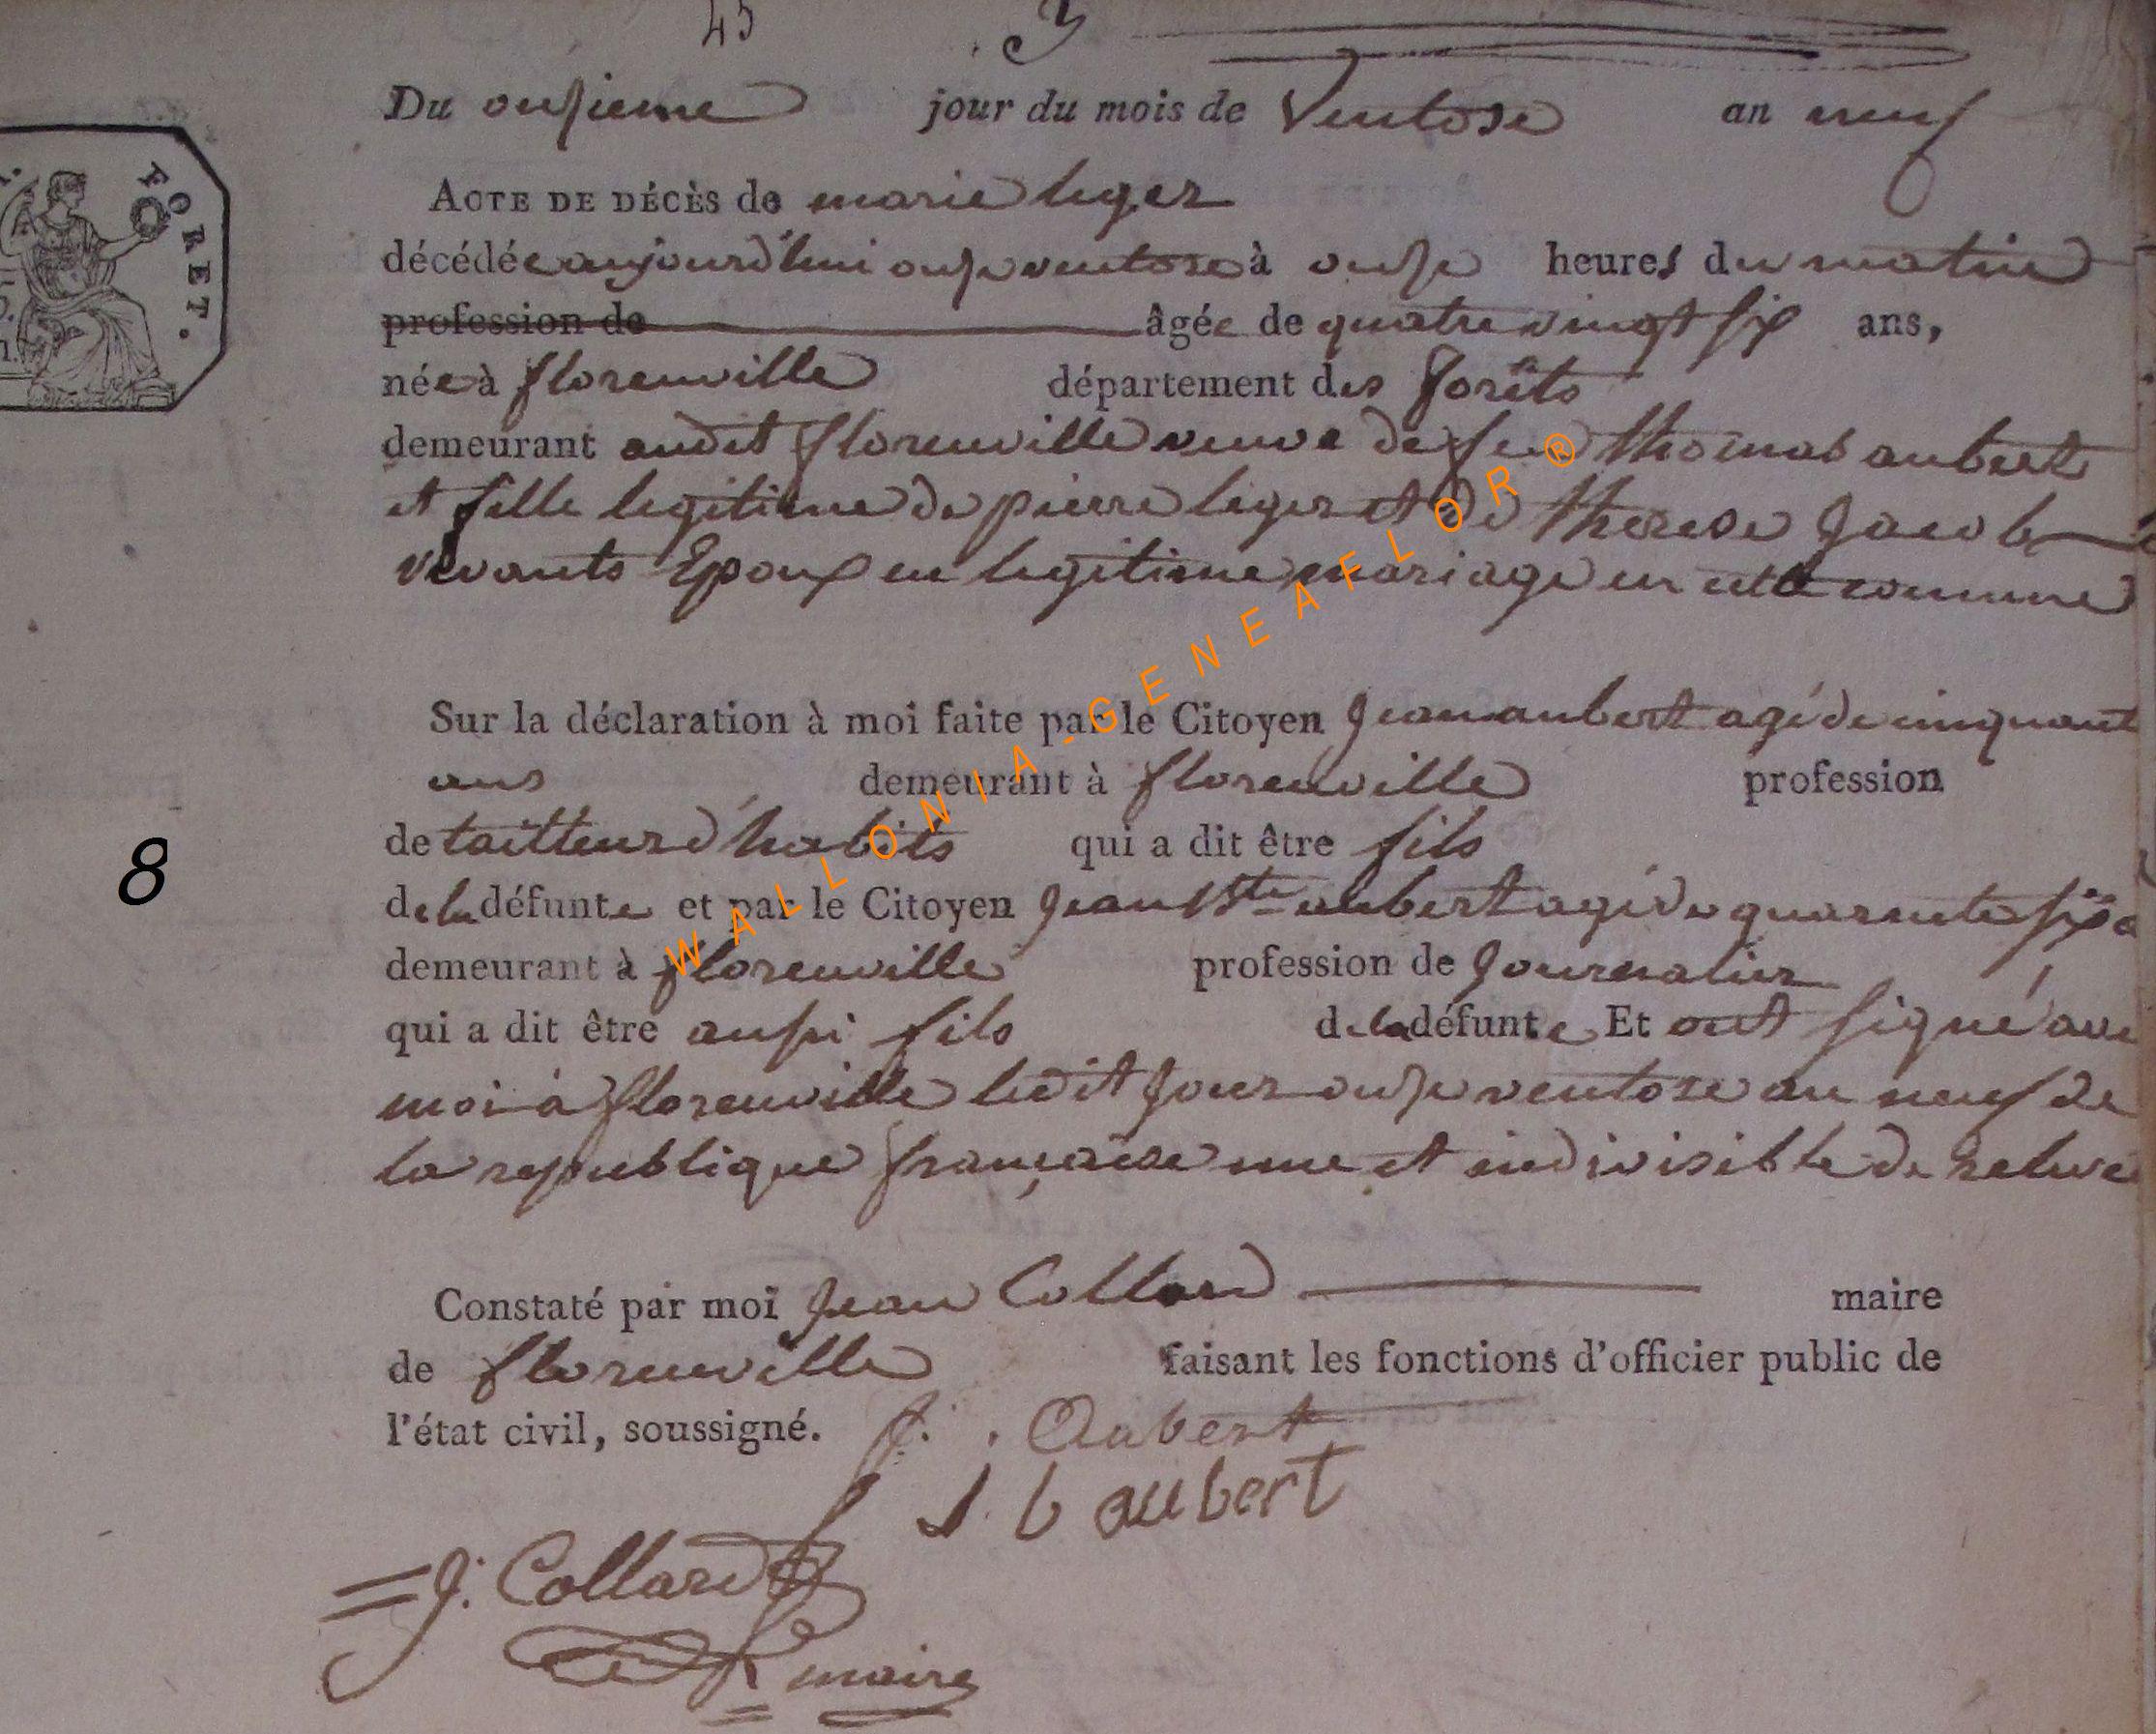 45 3
Du onsieme jour du mois de Ventose an neuf
FORET.
ACTE DE DÉCÈS de marie leger
décédée aujourd'hui onse ventose à onse heures du matin
profession de âgée de quatre vingt six ans,
née à florenville département des forêts
demeurant audit florenville veuve de feu thomas aubert
et fille legitime de pierre leger et de therese Jacob
vivants Epoux en legitime mariage en cette comune
Sur la déclaration à moi faite par le Citoyen Jean aubert agé de cinquant
ans demeurant à florenville profession
de tailleur d'habits qui a dit être fils
de la défunte et par le Citoyen Jean Bte aubert agé de quarante six a
8
demeurant à florenville profession de Journalier
qui a dit être aussi fils de la défunte Et ont signé avec
moi à florenville ledit Jour onse ventose an neuf de
la republique française une et indivisible de
Constaté par moi Jean Collard maire
de florenville faisant les fonctions d'officier public de
l'état civil, soussigné. J. Aubert
J. b aubert
J. Collard
maire
WALLONIA-GENEAFLOR ®